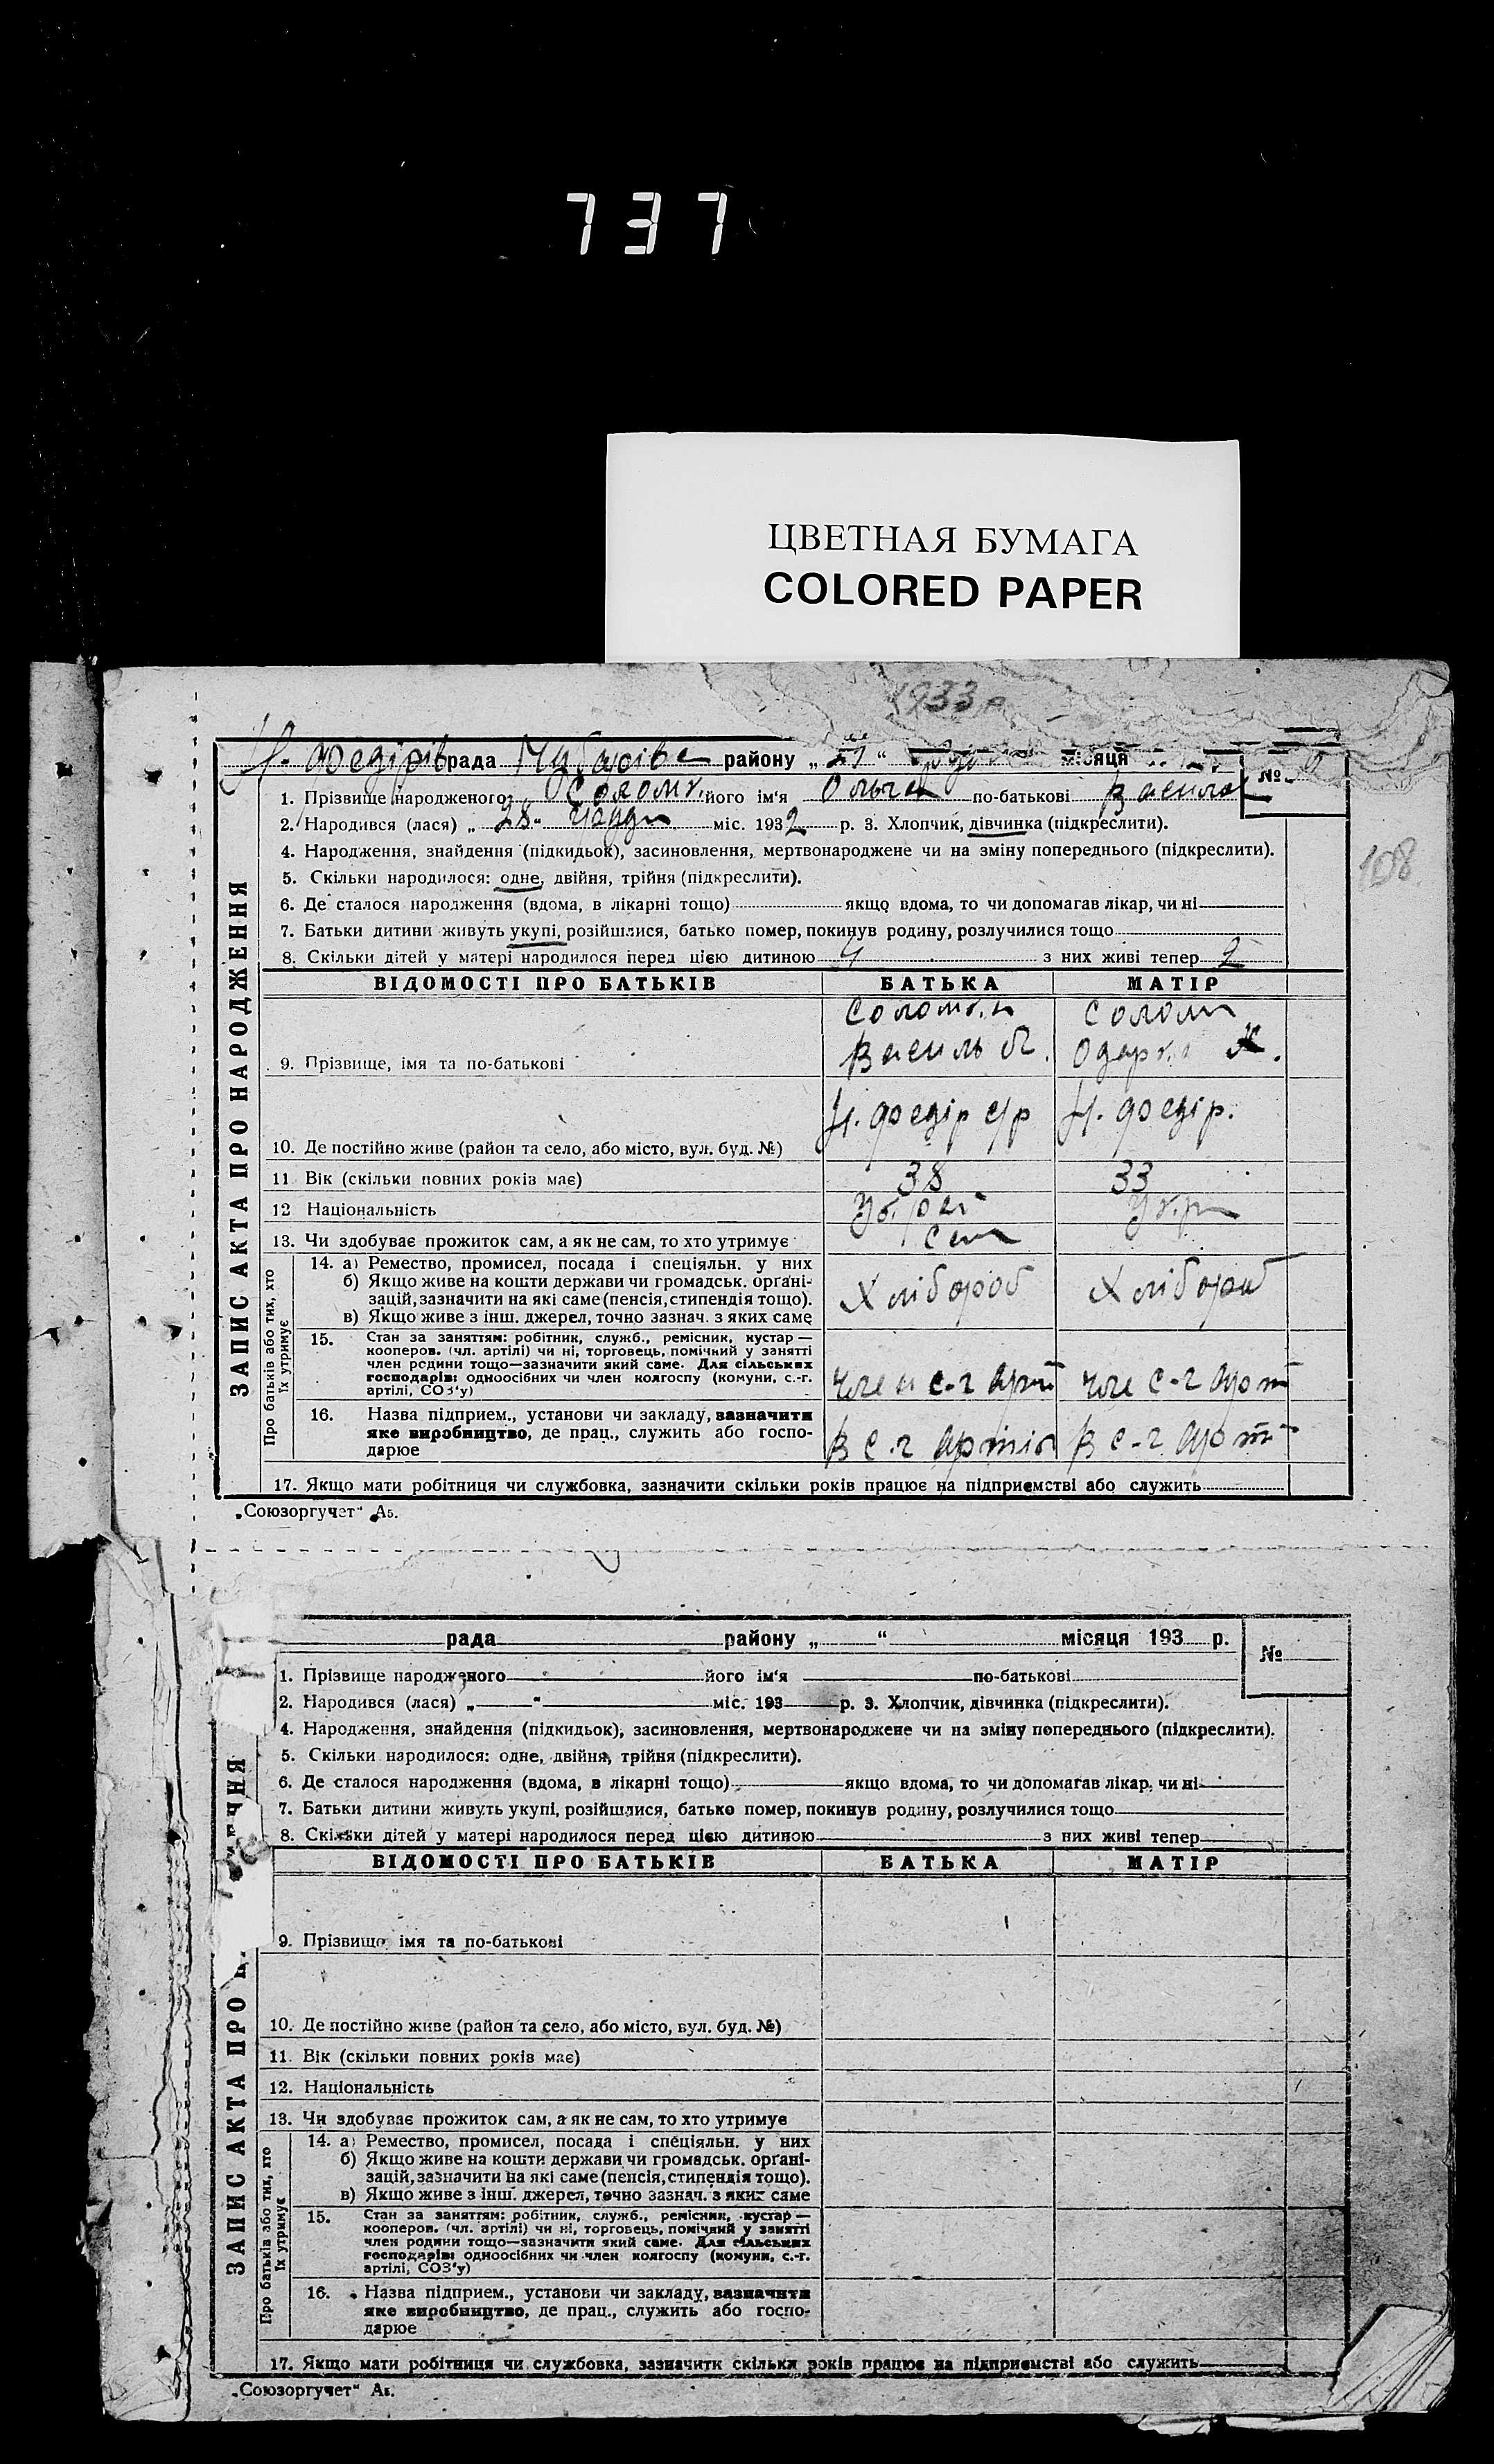 737
ЦВЕТНАЯ БУМАГА
COLORED PAPER
1933 р
Н. Федорів рада Чубарівс району „27“ місяця №
1. Прізвище народженого його ім'я Ольга по-батькові Васил
2. Народився (лася) „28“ міс. 1932 р. 3. Хлопчик, дівчинка (підкреслити).
4. Народження, знайдення (підкидьок), засиновлення, мертвонароджене чи на зміну попереднього (підкреслити).
108
5. Скільки народилося: одне, двійня, трійня (підкреслити).
6. Де сталося народження (вдома, в лікарні тощо) якщо вдома, то чи допомагав лікар, чи ні
7. Батьки дитини живуть укупі, розійшлися, батько помер, покинув родину, розлучилися тощо
8. Скільки дітей у матері народилося перед цією дитиною 4 з них живі тепер 2
ЗАПИС АКТА ПРО НАРОДЖЕННЯ
ВІДОМОСТІ ПРО БАТЬКІВ БАТЬКА МАТІР
Солом
Василь
9. Прізвище, імя та по-батькові
Н. Федір с/р Н. Федір.
10. Де постійно живе (район та село, або місто, вул. буд. №)
11 Вік (скільки повних років має) 38 33
12 Національність Укр
13. Чи здобуває прожиток сам, а як не сам, то хто утримує Сам
Про батьків або тих, хто їх утримує
14. а) Ремество, промисел, посада і спеціяльн. у них
б) Якщо живе на кошти держави чи громадськ. орґані-
зацій, зазначити на які саме (пенсія, стипендія тощо).
в) Якщо живе з інш. джерел, точно зазнач. з яких саме
Хлібороб Хлібороб
15. Стан за заняттям: робітник, служб., ремісник, кустар —
кооперов. (чл. артілі) чи ні, торговець, помічний у занятті
член родини тощо—зазначити який саме. Для сільських
господарів: одноосібних чи член колгоспу (комуни, с.-г.
артілі, СОЗ'у)
член с-г арт чле с-г арт
16. Назва підприєм., установи чи закладу, зазначити
яке виробництво, де прац., служить або госпо-
дарює
В с-г артіл В с-г арт
17. Якщо мати робітниця чи службовка, зазначити скільки років працює на підприємстві або служить
„Союзоргучет“ Аб.
рада району „ “ місяця 193 р. №
1. Прізвище народженого його ім'я по-батькові
2. Народився (лася) „ “ міс. 193 р. 3. Хлопчик, дівчинка (підкреслити).
4. Народження, знайдення (підкидьок), засиновлення, мертвонароджене чи на зміну попереднього (підкреслити).
5. Скільки народилося: одне, двійня, трійня (підкреслити).
6. Де сталося народження (вдома, в лікарні тощо) якщо вдома, то чи допомагав лікар, чи ні
7. Батьки дитини живуть укупі, розійшлися, батько помер, покинув родину, розлучилися тощо
8. Скільки дітей у матері народилося перед цією дитиною з них живі тепер
ЗАПИС АКТА ПРО
ВІДОМОСТІ ПРО БАТЬКІВ БАТЬКА МАТІР
9. Прізвище імя та по-батькові
10. Де постійно живе (район та село, або місто, вул. буд. №)
11. Вік (скільки повних років має)
12. Національність
13. Чи здобуває прожиток сам, а як не сам, то хто утримує
Про батьків або тих, хто їх утримує
14. а) Ремество, промисел, посада і спеціяльн. у них
б) Якщо живе на кошти держави чи громадськ. орґані-
зацій, зазначити на які саме (пенсія, стипендія тощо).
в) Якщо живе з інш. джерел, точно зазнач. з яких саме
15. Стан за заняттям: робітник, служб., ремісник, кустар —
кооперов. (чл. артілі) чи ні, торговець, помічний у занятті
член родини тощо—зазначити який саме. Для сільських
господарів: одноосібних чи член колгоспу (комуни, с.-г.
артілі, СОЗ'у)
16. Назва підприєм., установи чи закладу, зазначити
яке виробництво, де прац., служить або госпо-
дарює
17. Якщо мати робітниця чи службовка, зазначити скільки років працює на підприємстві або служить
„Союзоргучет“ Аб.